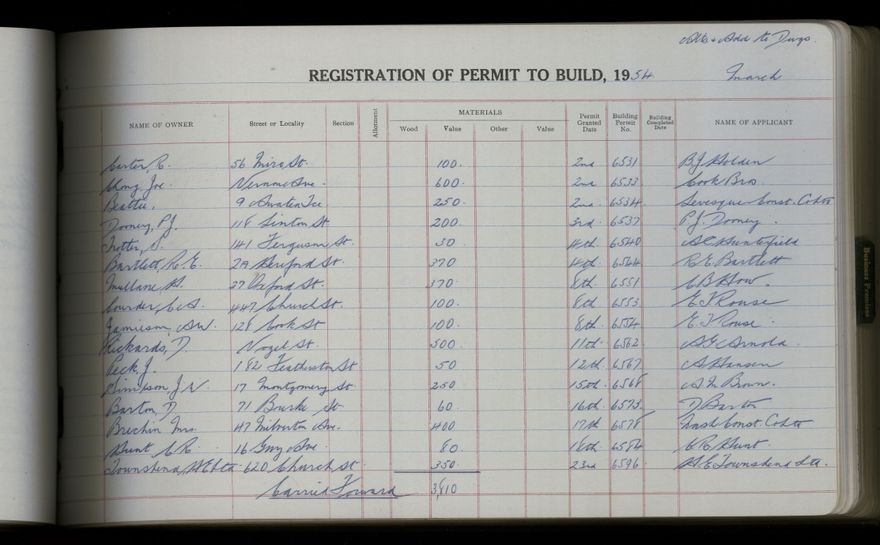 Alts & Add to Dwgs.
REGISTRATION OF PERMIT TO BUILD, 1954 March
NAME OF OWNER Street or Locality Section Allotment MATERIALS Wood Value Other Value Permit Granted Date Building Permit No. Building Completed Date NAME OF APPLICANT
Carter, C. 56 Mira St. 100. 2nd 6531 B J Holden
Chong, Joe. Ave. 600. 2nd 6533 Cook Bros
Beattie. 9 Ave 250. 2nd 6534 Levesque Const. Co Ltd
Dooney, P.J. 118 Linton St 200. 3rd 6537 P.J. Dooney.
Trotter, 141 Ferguson St. 50 4th 6540
Bartlett, R. E. 29 St. 370 4th 6544 R E Bartlett
Mullane, 27 Oxford St. 370. 8th 6551 C B How.
447 Church St. 100. 8th 6553 E V Rouse
Jamieson, 128 Cook St 100. 8th 6554 E. V. Rouse.
Rickards, D. Vogel St. 500 11th 6562 Arnold
Peck, J. 182 Featherston St 50 12th 6567 A Hansen
Simpson, J N. 17 Montgomery St 250 15th 6568 Brown.
Barton, D 71 Bourke St. 60. 16th 6573 D Barton
Brechin Mrs. 47 Milverton Ave. 400 17th 6578 Nash Const. Co Ltd
Hunt C R. 16 Guy Ave. 80. 18th 6584 C R Hunt.
Townshend, W E Ltd 620 Church St 350. 23rd 6596 W. E Townshend Ltd.
Carried Forward 3,810
Business Premises